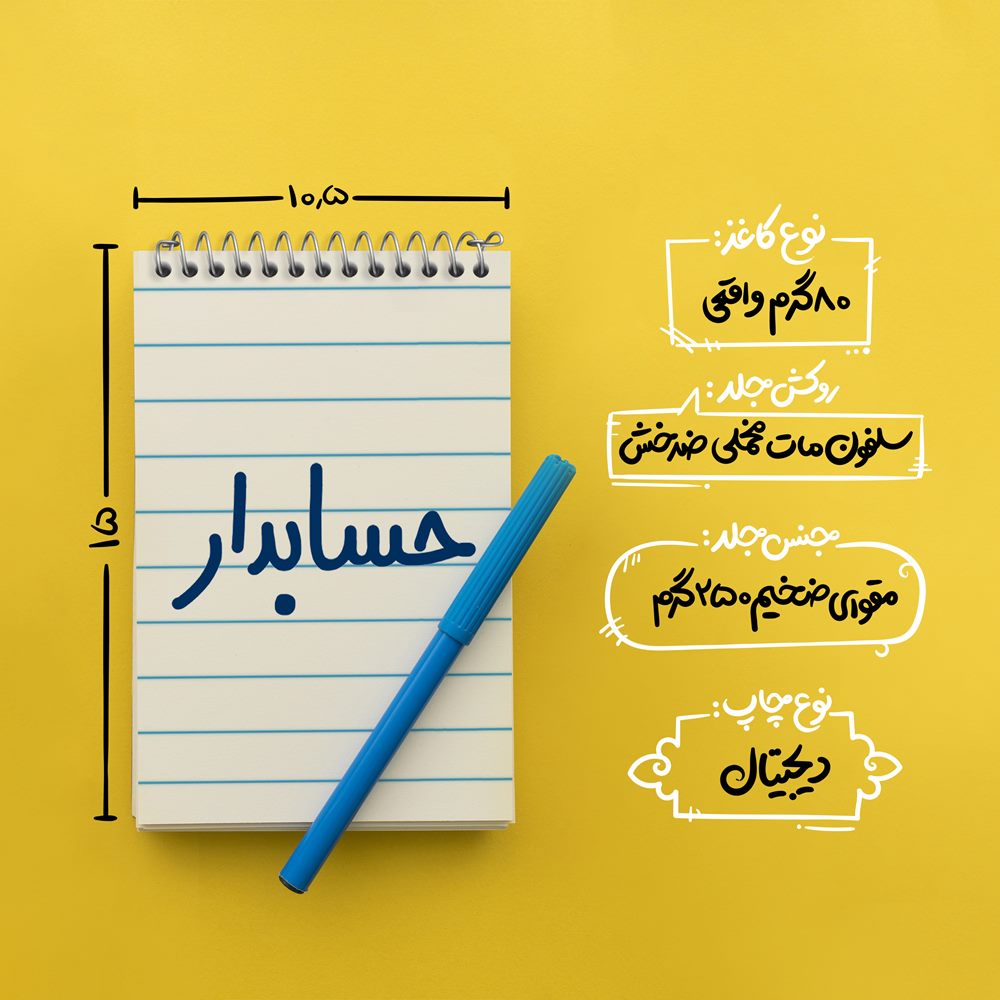 ۱۰٫۵
۱۵
حسابدار
نوع کاغذ:
۸۰گرم واقعی
روکش جلد:
سلفون مات مخملی ضدخش
جنس جلد:
مقوای ضخیم ۲۵۰گرم
نوع چاپ:
دیجیتال